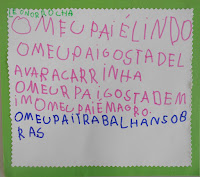 LEONOR ROCHA
OMEUPAIÉLINDO
OMEUPAIGOSTADEL
AVARACARRINHA
OMEURPAIGOSTADEM
IMOMEUPAIEMAGRO.
OMEUPAITRABALHANSOB
RAS